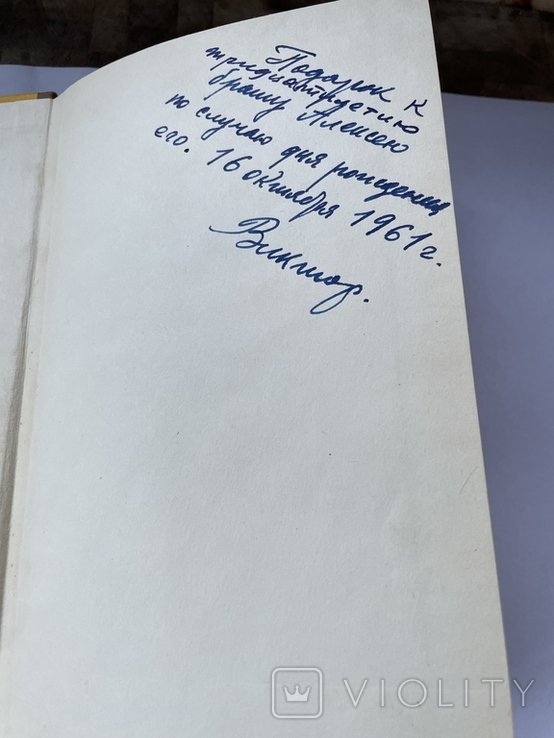 Подарок к
тридцатилетию
брату Алексею
по случаю дня рождения
его. 16 октября 1961 г.
Виктор.
VIOLITY